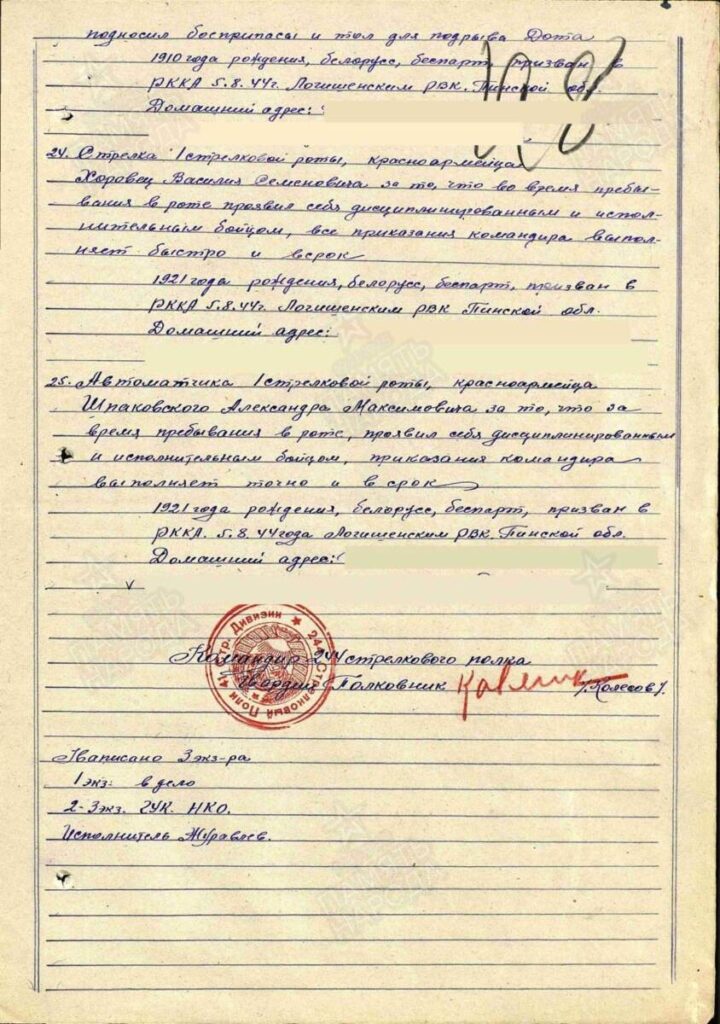 подносил боеприпасы и тол для подрыва Дота
1910 года рождения, белорусс, беспарт, призван в
РККА 5.8.44г. Логишенским РВК. Пинской обл.
Домашний адрес:
24. Стрелка 1 стрелковой роты, красноармейца
Хоровец Василия Семеновича за то, что во время пребы-
вания в роте проявил себя дисциплинированным и испол-
нительным бойцом, все приказания командира выпол-
няет быстро и в срок
1921 года рождения, белорусс, беспарт, призван в
РККА 5.8.44г. Логишенским РВК Пинской обл.
Домашний адрес:
25. Автоматчика 1 стрелковой роты, красноармейца
Шпаковского Александра Максимовича за то, что за
время пребывания в роте, проявил себя дисциплинированным
и исполнительным бойцом, приказания командира
выполняет точно и в срок
1921 года рождения, белорусс, беспарт, призван в
РККА. 5.8.44 года Логишенским РВК. Пинской обл.
Домашний адрес:
Дивизии ★ 244 Стрелковый Полк
Командир 244 стрелкового полка
Гвардии Полковник /Колесов/.
Написано 3 экз-ра
1 экз. в дело
2-3 экз. ГУК. НКО.
Исполнитель Журавлев.
ПАМЯТЬ
НАРОДА